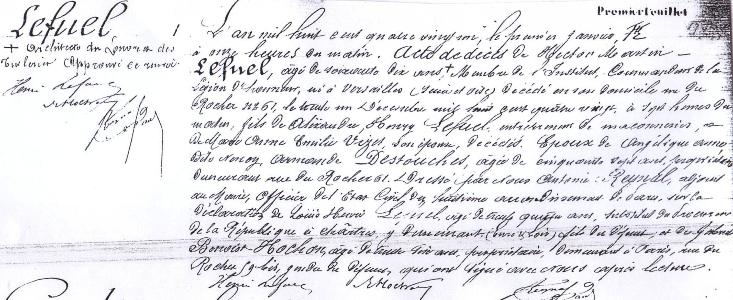 Premier feuillet
Lefuel 1
+ architecte du Louvre et des
Tuileries Approuvé ce renvoi
Henri Lefuel
L'an mil huit cent quatre vingt un, le premier janvier,
à onze heures du matin. Acte de décès de Hector Martin
Lefuel, âgé de soixante dix ans, Membre de l'Institut, Commandeur de la
Légion d'honneur, né à Versailles (Seine et Oise) décédé en son domicile rue du
Rocher N° 61, le trente un Décembre mil huit cent quatre vingt, à sept heures du
matin, fils de Alexandre, Henry Lefuel, entrepreneur de maçonnerie, et
de Marie Anne Emilie son épouse, décédés. Epoux de Angélique anne
dite nancy, armande Destouches, âgée de cinquante sept ans, propriétaire
demeurant rue du Rocher 61. Dressé par nous Antonin adjoint
au Maire, Officier de l'Etat Civil du huitième arrondissement de Paris, sur la
déclaration de Louis Henri Lefuel, âgé de ans, substitut du Procureur
de la République à Chartres, y demeurant (Eure et Loir) fils du défunt, et de
Benoist Hochon, âgé de trente ans, propriétaire, demeurant à Paris, rue du
Rocher gendre du défunt, qui ont signé avec nous après lecture.
Henri Lefuel Hochon